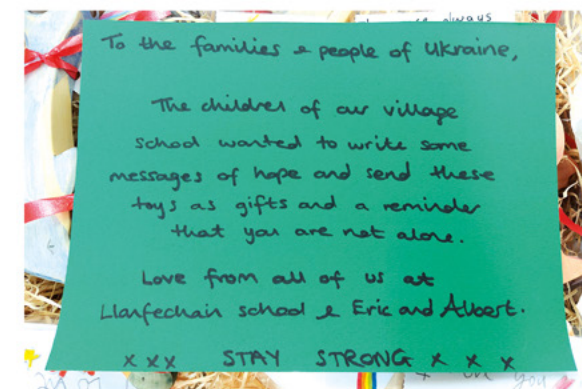 always
To the families & people of Ukraine,
The children of our village
school wanted to write some
messages of hope and send these
toys as gifts and a reminder
that you are not alone.
Love from all of us at
Llanfechain school & Eric and Albert.
x x x STAY STRONG x x x
on you